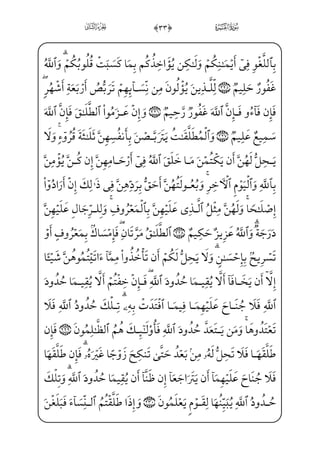 الجزء الثاني ﴿٣٣﴾ سورة البقرة
بِٱللَّغْوِ فِىٓ أَيْمَـٰنِكُمْ وَلَـٰكِن يُؤَاخِذُكُم بِمَا كَسَبَتْ قُلُوبُكُمْ ۗ وَٱللَّهُ
غَفُورٌ حَلِيمٌ ۝٢٢٥ لِّلَّذِينَ يُؤْلُونَ مِن نِّسَآئِهِمْ تَرَبُّصُ أَرْبَعَةِ أَشْهُرٍ ۖ
فَإِن فَآءُو فَإِنَّ ٱللَّهَ غَفُورٌ رَّحِيمٌ ۝٢٢٦ وَإِنْ عَزَمُوا۟ ٱلطَّلَـٰقَ فَإِنَّ ٱللَّهَ
سَمِيعٌ عَلِيمٌ ۝٢٢٧ وَٱلْمُطَلَّقَـٰتُ يَتَرَبَّصْنَ بِأَنفُسِهِنَّ ثَلَـٰثَةَ قُرُوٓءٍ ۚ وَلَا
يَحِلُّ لَهُنَّ أَن يَكْتُمْنَ مَا خَلَقَ ٱللَّهُ فِىٓ أَرْحَامِهِنَّ إِن كُنَّ يُؤْمِنَّ
بِٱللَّهِ وَٱلْيَوْمِ ٱلْـَٔاخِرِ ۚ وَبُعُولَتُهُنَّ أَحَقُّ بِرَدِّهِنَّ فِى ذَٰلِكَ إِنْ أَرَادُوٓا۟
إِصْلَـٰحًا ۚ وَلَهُنَّ مِثْلُ ٱلَّذِى عَلَيْهِنَّ بِٱلْمَعْرُوفِ ۚ وَلِلرِّجَالِ عَلَيْهِنَّ
دَرَجَةٌ ۗ وَٱللَّهُ عَزِيزٌ حَكِيمٌ ۝٢٢٨ ٱلطَّلَـٰقُ مَرَّتَانِ ۖ فَإِمْسَاكٌۢ بِمَعْرُوفٍ أَوْ
تَسْرِيحٌۢ بِإِحْسَـٰنٍ ۗ وَلَا يَحِلُّ لَكُمْ أَن تَأْخُذُوا۟ مِمَّآ ءَاتَيْتُمُوهُنَّ شَيْـًٔا
إِلَّآ أَن يَخَافَآ أَلَّا يُقِيمَا حُدُودَ ٱللَّهِ ۖ فَإِنْ خِفْتُمْ أَلَّا يُقِيمَا حُدُودَ
ٱللَّهِ فَلَا جُنَاحَ عَلَيْهِمَا فِيمَا ٱفْتَدَتْ بِهِۦ ۗ تِلْكَ حُدُودُ ٱللَّهِ فَلَا
تَعْتَدُوهَا ۚ وَمَن يَتَعَدَّ حُدُودَ ٱللَّهِ فَأُو۟لَـٰٓئِكَ هُمُ ٱلظَّـٰلِمُونَ ۝٢٢٩ فَإِن
طَلَّقَهَا فَلَا تَحِلُّ لَهُۥ مِنۢ بَعْدُ حَتَّىٰ تَنكِحَ زَوْجًا غَيْرَهُۥ ۗ فَإِن طَلَّقَهَا
فَلَا جُنَاحَ عَلَيْهِمَآ أَن يَتَرَاجَعَآ إِن ظَنَّآ أَن يُقِيمَا حُدُودَ ٱللَّهِ ۗ وَتِلْكَ
حُدُودُ ٱللَّهِ يُبَيِّنُهَا لِقَوْمٍ يَعْلَمُونَ ۝٢٣٠ وَإِذَا طَلَّقْتُمُ ٱلنِّسَآءَ فَبَلَغْنَ